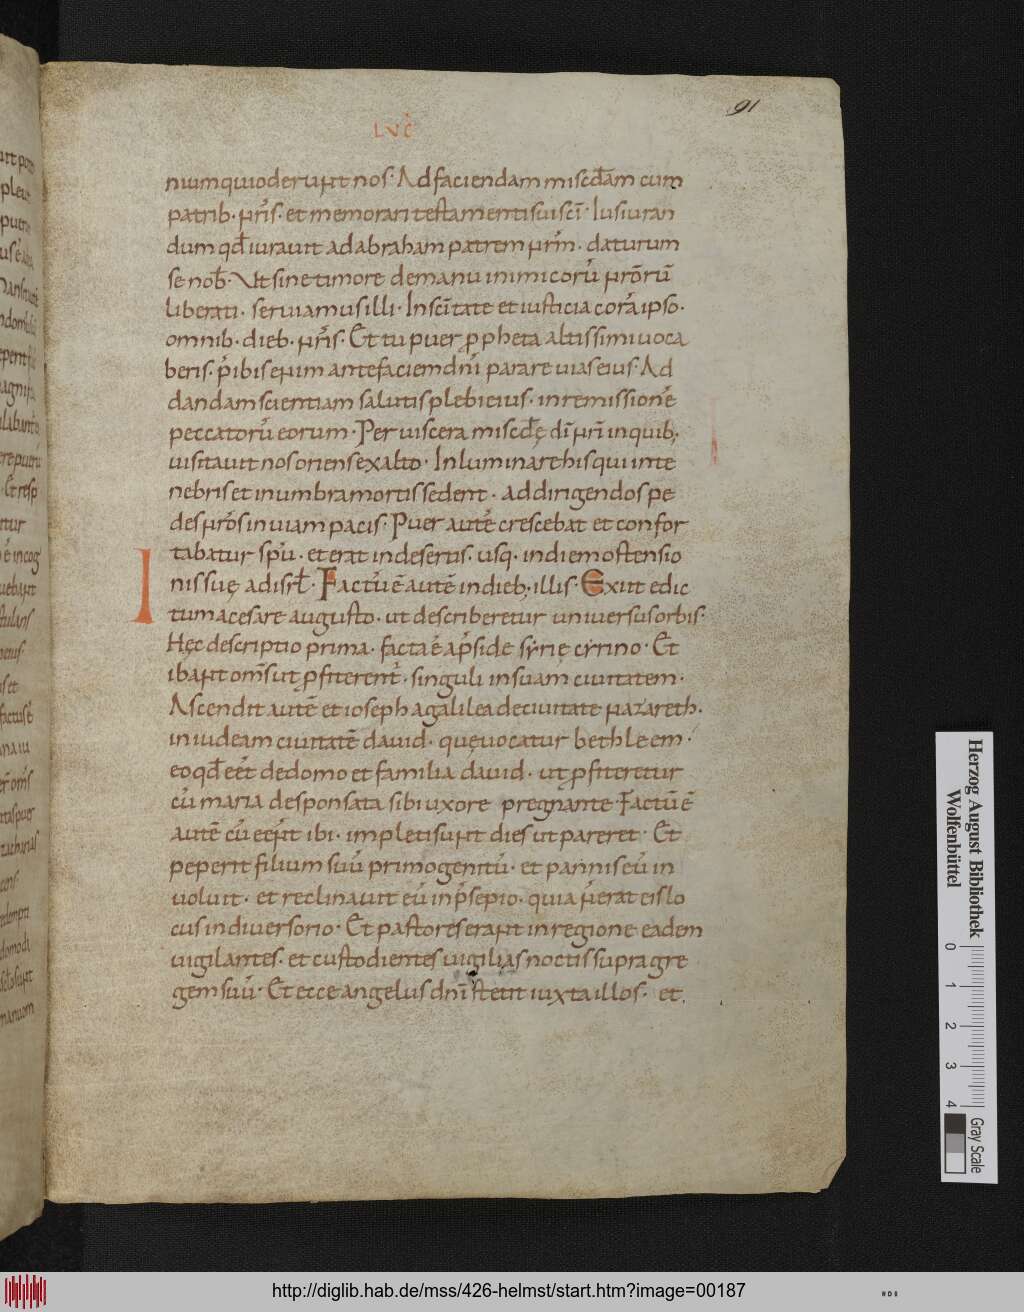 91
LVC̄
niumquioderunt nos· Ad faciendam miscd̄am cum
patrib· nr̄is· et memorari testamenti sui sc̄i· Iusiuran
dum qd̄ iurauit ad abraham patrem nr̄m· daturum
se nob̄· Vt sine timore de manu inimicorū nr̄orū
liberati· seruiamus illi· In sc̄itate et iusticia corā ipso·
omnib· dieb· nr̄is· Et tu puer ꝓpheta altissimi uoca
beris· p̄ibis enim ante faciem dn̄i parare uias eius· Ad
dandam scientiam salutis plebi eius· in remissionē
peccatorū eorum· Per uiscera miscd̄ę dī nr̄i in quib;
uisitauit nos oriens ex alto· Inluminare his qui in te
nebris et in umbra mortis sedent· ad dirigendos pe
des nr̄os in uiam pacis· Puer autē crescebat et confor
tabatur spū· et erat in desertis· usq· in diem ostensio
nis suę ad isrl̄· Factū ē autē in dieb; illis· Exiit edic
tum a cesare augusto· ut describeretur uniuersus orbis·
Hęc descriptio prima· facta ē a p̄side syrię cyrino· Et
ibant om̄s ut ꝓfiterent᷑· singuli in suam ciuitatem·
Ascendit autē et ioseph a galilea de ciuitate nazareth·
in iudeam ciuitatē dauid· quę uocatur bethleem·
eo qd̄ eēt de domo et familia dauid· ut ꝓfiteretur
cū maria desponsata sibi uxore pregnante Factū ē
autē cū eēnt ibi· impleti sunt dies ut pareret· Et
peperit filium suū primogenitū· et pannis eū in
uoluit· et reclinauit eū in p̄sepio· quia n̄ erat eis lo
cus in diuersorio· Et pastores erant in regione eadem
uigilantes· et custodientes uigilias noctis supra gre
gem suū· Et ecce angelus dn̄i stetit iuxta illos· et
Herzog August Bibliothek
Wolfenbüttel
0 1 2 3 4
Gray Scale
http://diglib.hab.de/mss/426-helmst/start.htm?image=00187